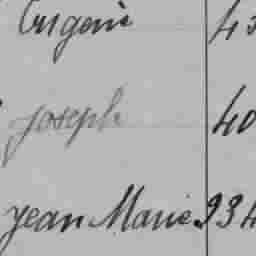 Eugenie 43
joseph 40
jean Marie 934